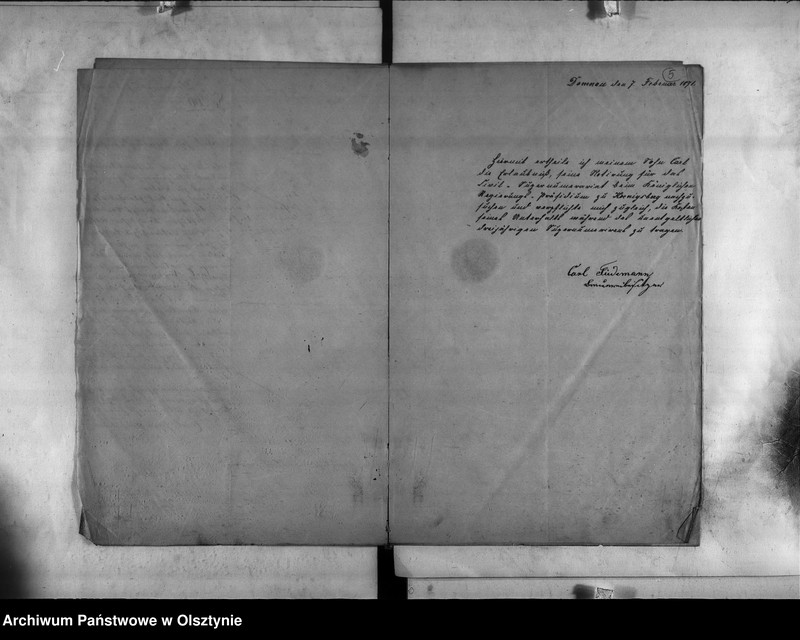 5
Domnau den 7. Februar 1871.
Hiermit ertheile ich meinem Sohn Carl
die Erlaubniß, seine Notirung für das
Civil-Supernumerariat beim Königlichen
Regierungs-Präsidium zu Koenigsberg nachzu-
suchen und verpflichte mich zugleich, die Kosten
seines Unterhalts während des unentgeltlichen
dreijährigen Supernumerariats zu tragen
Carl Tiedemann
Brauereibesitzer
Archiwum Państwowe w Olsztynie